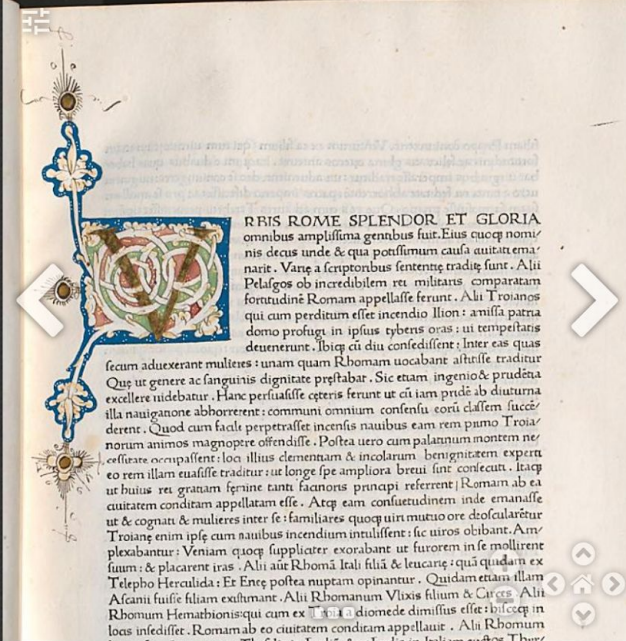 V RBIS ROME SPLENDOR ET GLORIA
omnibus amplissima gentibus fuit. Eius quoqꝫ nomi/
nis decus unde & qua potissimum causa ciuitati ema/
narit. Varię a scriptoribus sententię traditę sunt. Alii
Pelasgos ob incredibilem rei militaris comparatam
fortitudinē Romam appellasse ferunt. Alii Troianos
qui cum perditum esset incendio Ilion: amissa patria
domo profugi in ipsius tyberis oras: ui tempestatis
deuenerunt. Ibiqꝫ cū diu consedissent: Inter eas quas
secum aduexerant mulieres: unam quam Rhomam uocabant astitisse traditur
Quę ut genere ac sanguinis dignitate pręstabat. Sic etiam ingenio & prudētia
excellere uidebatur. Hanc persuasisse cęteris ferunt ut cū iam pridē ab diuturna
illa nauigatione abhorrerent: communi omnium consensu eorū classem succē/
derent. Quod cum facile perpetrasset incensis nauibus eam rem primo Troia/
norum animos magnopere offendisse. Postea uero cum palatinum montem ne/
cessitate occupassent: loci illius clementiam & incolarum benignitatem experti
eo rem illam euasisse traditur: ut longe spe ampliora breui sint consecuti. Itaqꝫ
ut huius rei gratiam fęmine tanti facinoris principi referrent Romam ab ea
ciuitatem conditam appellatam esse. Atqꝫ eam consuetudinem inde emanasse
ut & cognati & mulieres inter se: familiares quoqꝫ uiri mutuo ore deoscularētur
Troianę enim ipsę cum nauibus incendium intulissent: sic uiros obibant. Am/
plexabantur: Veniam quoqꝫ suppliciter exorabant ut furorem in se mollirent
suum: & placarent iras. Alii aūt Rhomā Itali filiā & leucarię: quā quidam ex
Telepho Herculida: Et Enee postea nuptam opinantur. Quidam etiam illam
Ascanii fuisse filiam existimant. Alii Rhomanum Vlixis filium & Circes Alii
Rhomum Hemathionis: qui cum ex Troia a diomede dimissus esset: hisceqꝫ in
locis insedisset. Romam ab eo ciuitatem conditam appellauit. Alii Rhomum